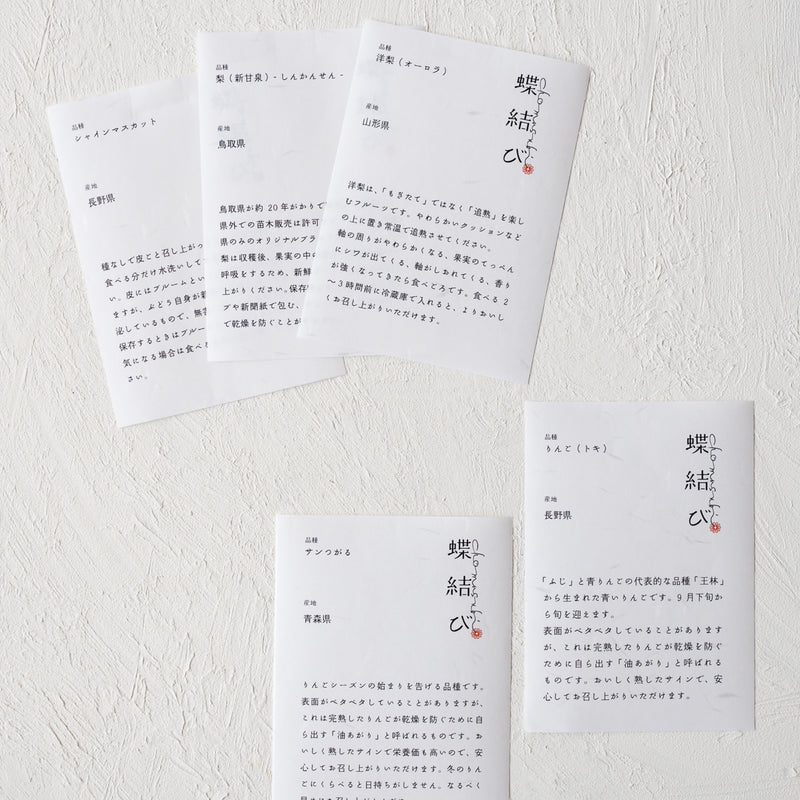 品種
シャインマスカット
産地
長野県
種なしで皮ごと召し上がっ
食べる分だけ水洗いして
い。皮にはブルームとい
ますが、ぶどう自身が
泌しているもので、無害
保存するときはブルー
気になる場合は食べる
さい。
品種
梨（新甘泉）- しんかんせん -
産地
鳥取県
鳥取県が約 20 年がかりで
県外での苗木販売は許可
県のみのオリジナルブラ
梨は収穫後、果実の中の
呼吸をするため、新鮮
上がりください。保存
プや新聞紙で包む、
で乾燥を防ぐことが
品種
洋梨（オーロラ）
蝶結び
chomusubi
産地
山形県
洋梨は、「もぎたて」ではなく「追熟」を楽し
むフルーツです。やわらかいクッションなど
の上に置き常温で追熟させてください。
軸の周りがやわらかくなる、果実のてっぺん
にシワが出てくる、軸がしおれてくる、香り
が強くなってきたら食べごろです。食べる 2
～3 時間前に冷蔵庫で入れると、よりおいし
くお召し上がりいただけます。
品種
りんご（トキ）
蝶結び
chomusubi
産地
長野県
「ふじ」と青りんごの代表的な品種「王林」
から生まれた青いりんごです。9 月下旬か
ら旬を迎えます。
表面がベタベタしていることがあります
が、これは完熟したりんごが乾燥を防ぐ
ために自ら出す「油あがり」と呼ばれる
ものです。おいしく熟したサインで、安
心してお召し上がりいただけます。
品種
サンつがる
蝶結び
chomusubi
産地
青森県
りんごシーズンの始まりを告げる品種です。
表面がベタベタしていることがありますが、
これは完熟したりんごが乾燥を防ぐために自
ら出す「油あがり」と呼ばれるものです。お
いしく熟したサインで栄養価も高いので、安
心してお召し上がりいただけます。冬のりん
ごにくらべると日持ちがしません。なるべく